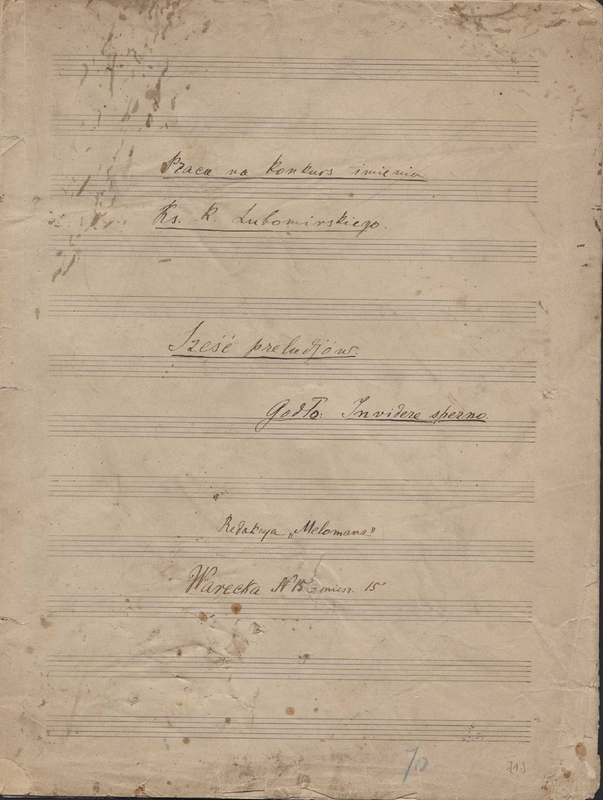 Praca na konkurs imienia
Ks. K. Lubomirskiego.
Sześć preludjów.
Godło: Invidere sperno.
Redakcya „Melomana”
Warecka № 15 miesz. 15
70